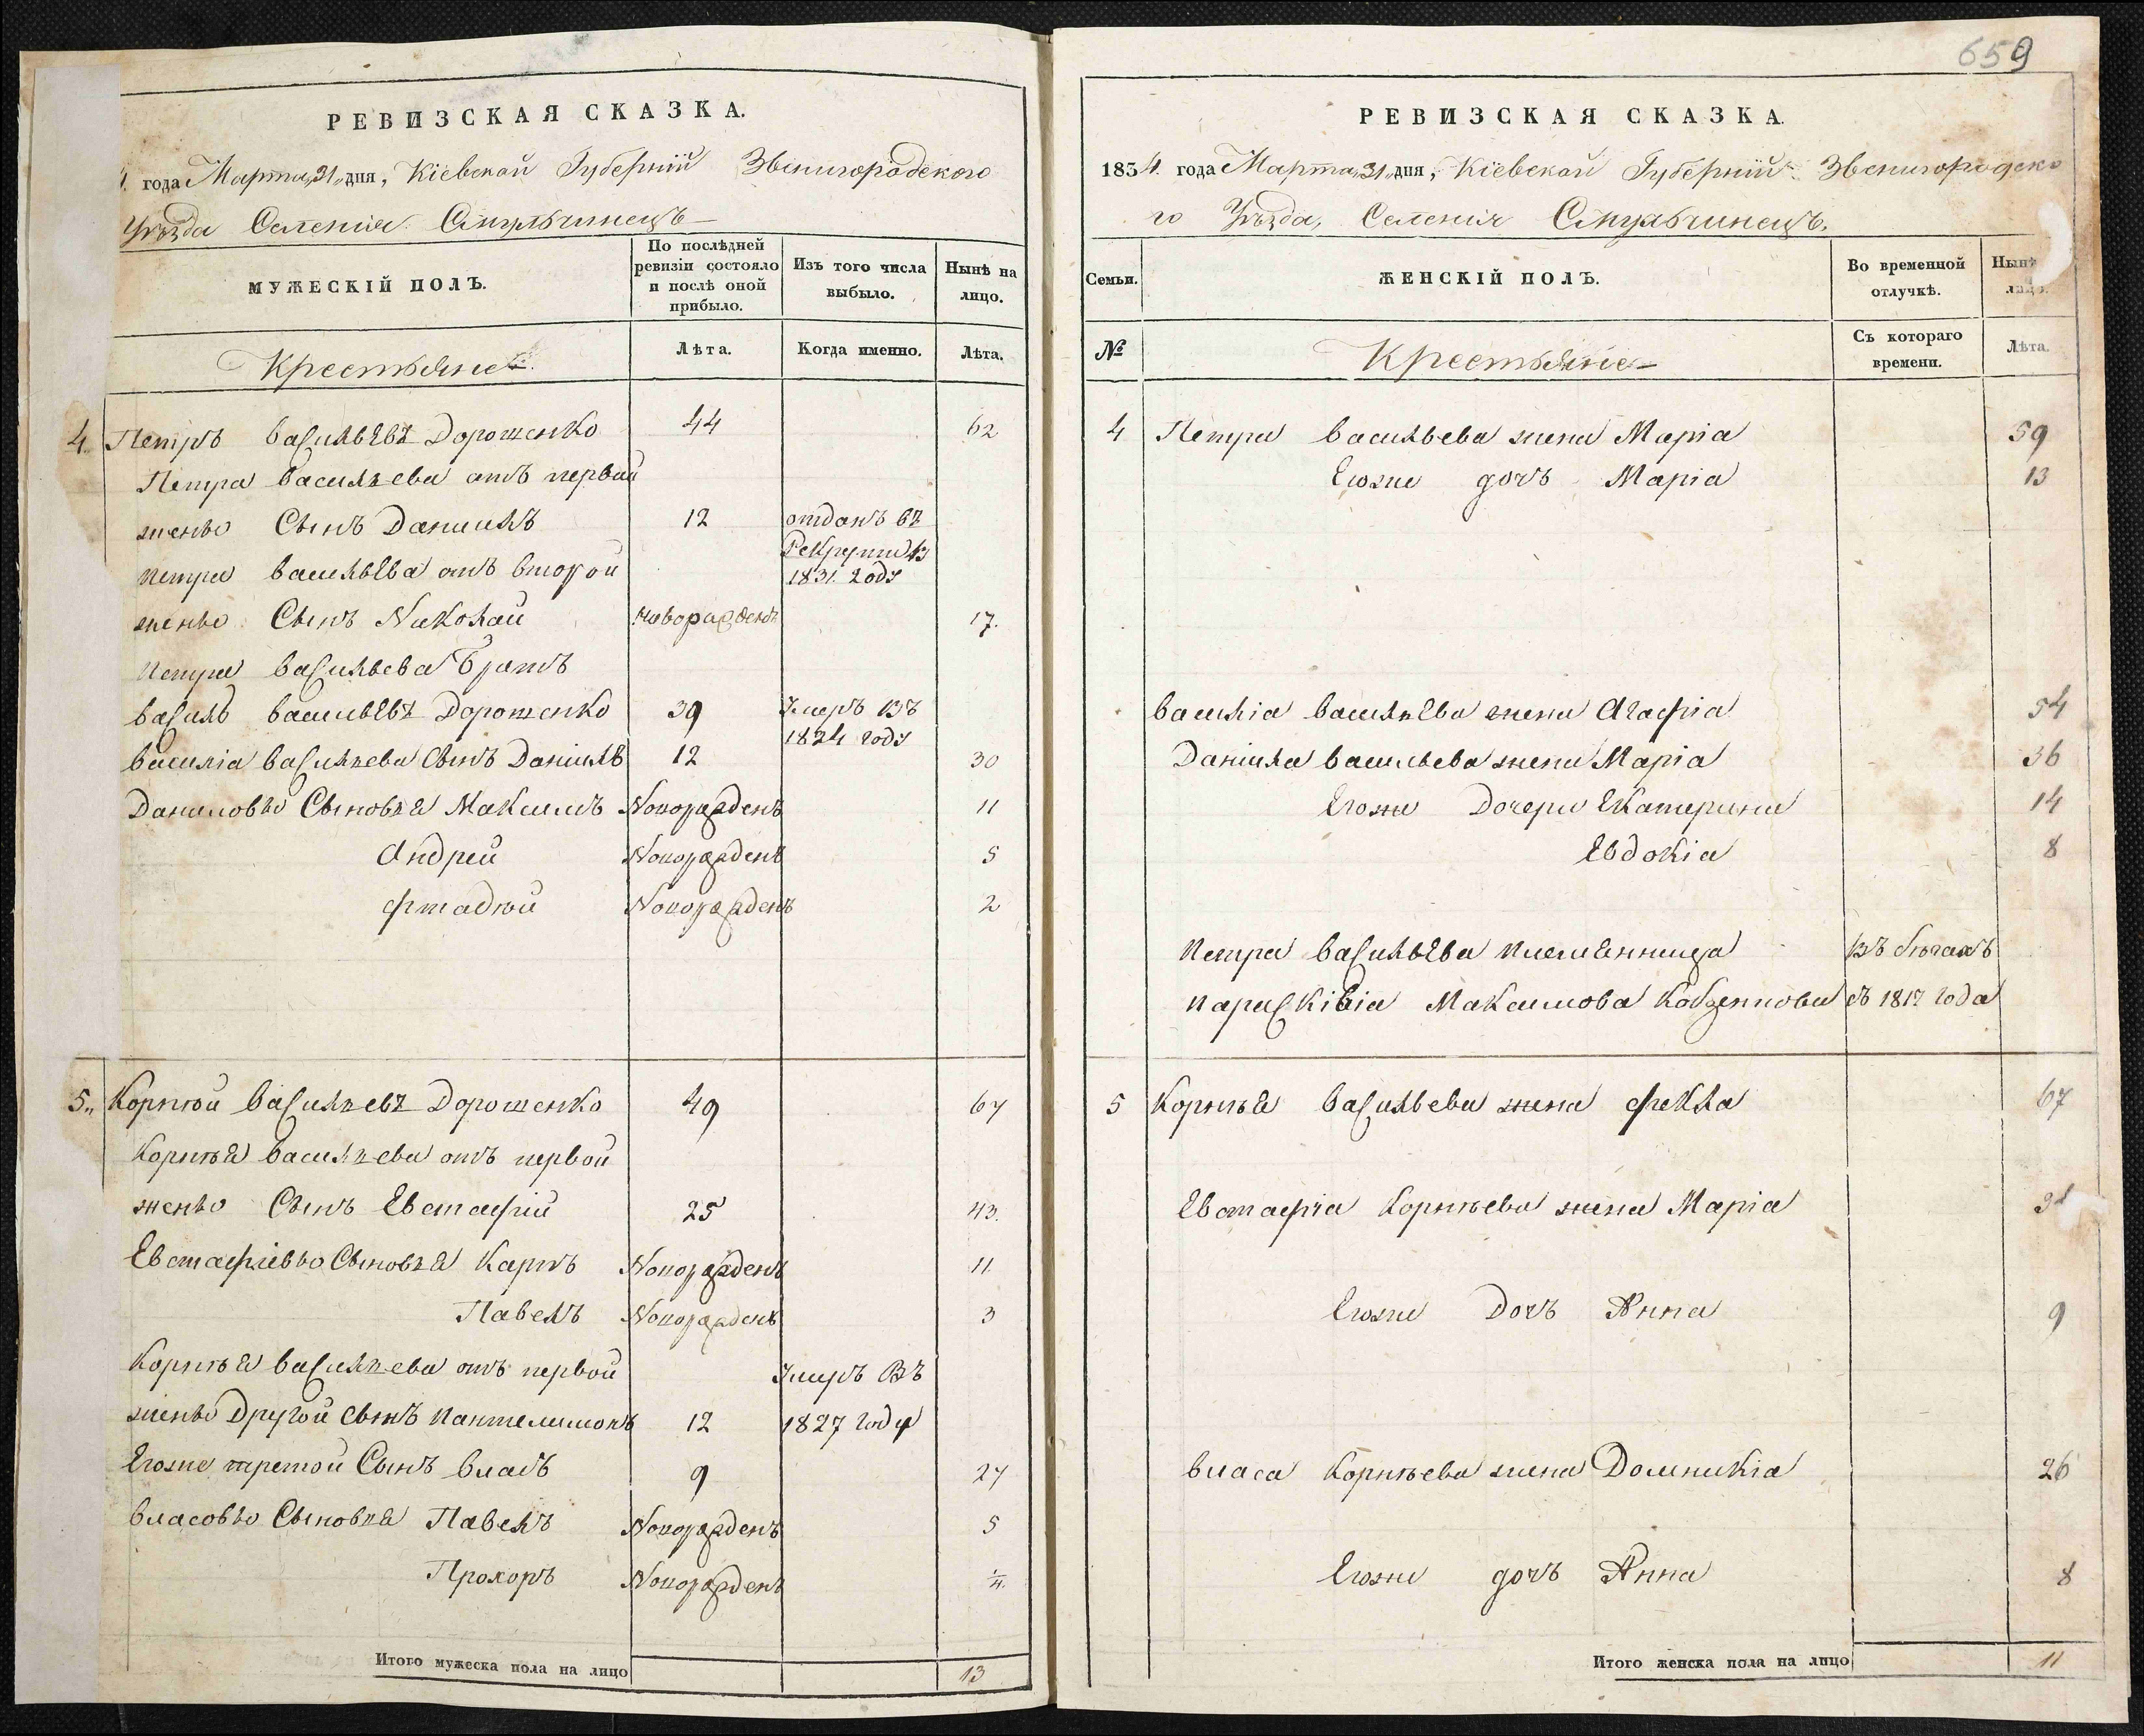 РЕВИЗСКАЯ СКАЗКА.
года Марта 31 дня, Кіевской Губерніи Звенигородского
Уѣзда Селенія Стульчинецъ
МУЖЕСКІЙ ПОЛЪ.
По послѣдней ревизіи состояло и послѣ оной прибыло.
Изъ того числа выбыло.
Нынѣ на лицо.
Крестьяне
Лѣта.
Когда именно.
Лѣта.
4. Петръ Васильевъ Дорошенко 44 62
Петра Васильева отъ первой
жены Сынъ Даниилъ 12 отданъ въ
Рекруты въ
Петра Васильева отъ второй 1831 году
жены Сынъ Николай новорожденъ 17.
Петра Васильева Братъ
Василь Васильевъ Дорошенко 39 Умеръ въ
1824 году
Василіа Васильева Сынъ Даніилъ 12 30
Даниловы Сыновья Максимъ Новорожденъ 11
Андрей Новорожденъ 5
Фтадѣй Новорожденъ 2
5. Корнѣй Васильевъ Дорошенко 49 67
Корнѣя Васильева отъ первой
жены Сынъ Евстафій 25 43.
Евстафіевы Сыновья Карпъ Новорожденъ 11
Павелъ Новорожденъ 3
Корнѣя Васильева отъ первой Умеръ Въ
жены Другой сынъ Пантелимонъ 12 1827 году
Егоже третой Сынъ Власъ 9 27
Власовы Сыновья Павелъ Новорожденъ 5
Прохоръ Новорожденъ
Итого мужеска пола на лицо 13
659
РЕВИЗСКАЯ СКАЗКА.
1834 года Марта 31 дня, Кіевской Губерніи Звенигородско
го Уѣзда, Селенія Стульчинецъ.
Семьи.
ЖЕНСКІЙ ПОЛЪ.
Во временной отлучкѣ.
Нынѣ лицо.
№
Крестьяне
Съ котораго времени.
Лѣта.
4 Петра Васильева жена Маріа 59
Егоже дочъ Маріа 13
Василіа Васильева жена Агафіа 54
Даніила Васильева жена Маріа 36
Егоже Дочери Екатерина 14
Евдокіа 8
Петра Васильева племянница въ бѣгахъ
Параскивіа Максимова съ 1817 года
5 Корнѣя Васильева жена Фекла 67
Евстафіа Корнѣева жена Маріа
Егоже Дочъ Анна 9
Власа Корнѣева жена Домникіа 26
Егоже дочъ Анна 8
Итого женска пола на лицо 11